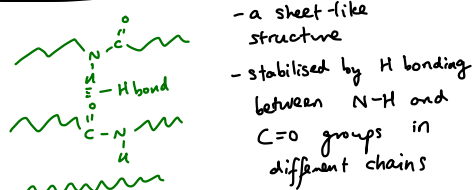 O
C
N
H
H bond
O
C - N
H
- a sheet-like
structure
- stabilised by H bonding
between N-H and
C=O groups in
different chains